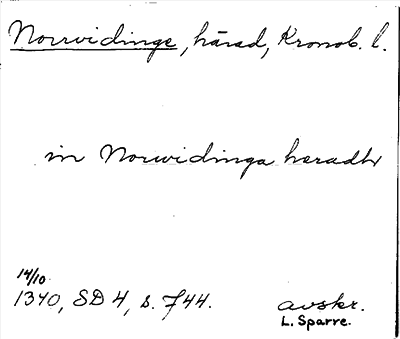 Norrvidinge, härad, Kronob. l.
in Norwidinga heradh
14/10
1340, SD 4, s. 744.
avskr.
L. Sparre.